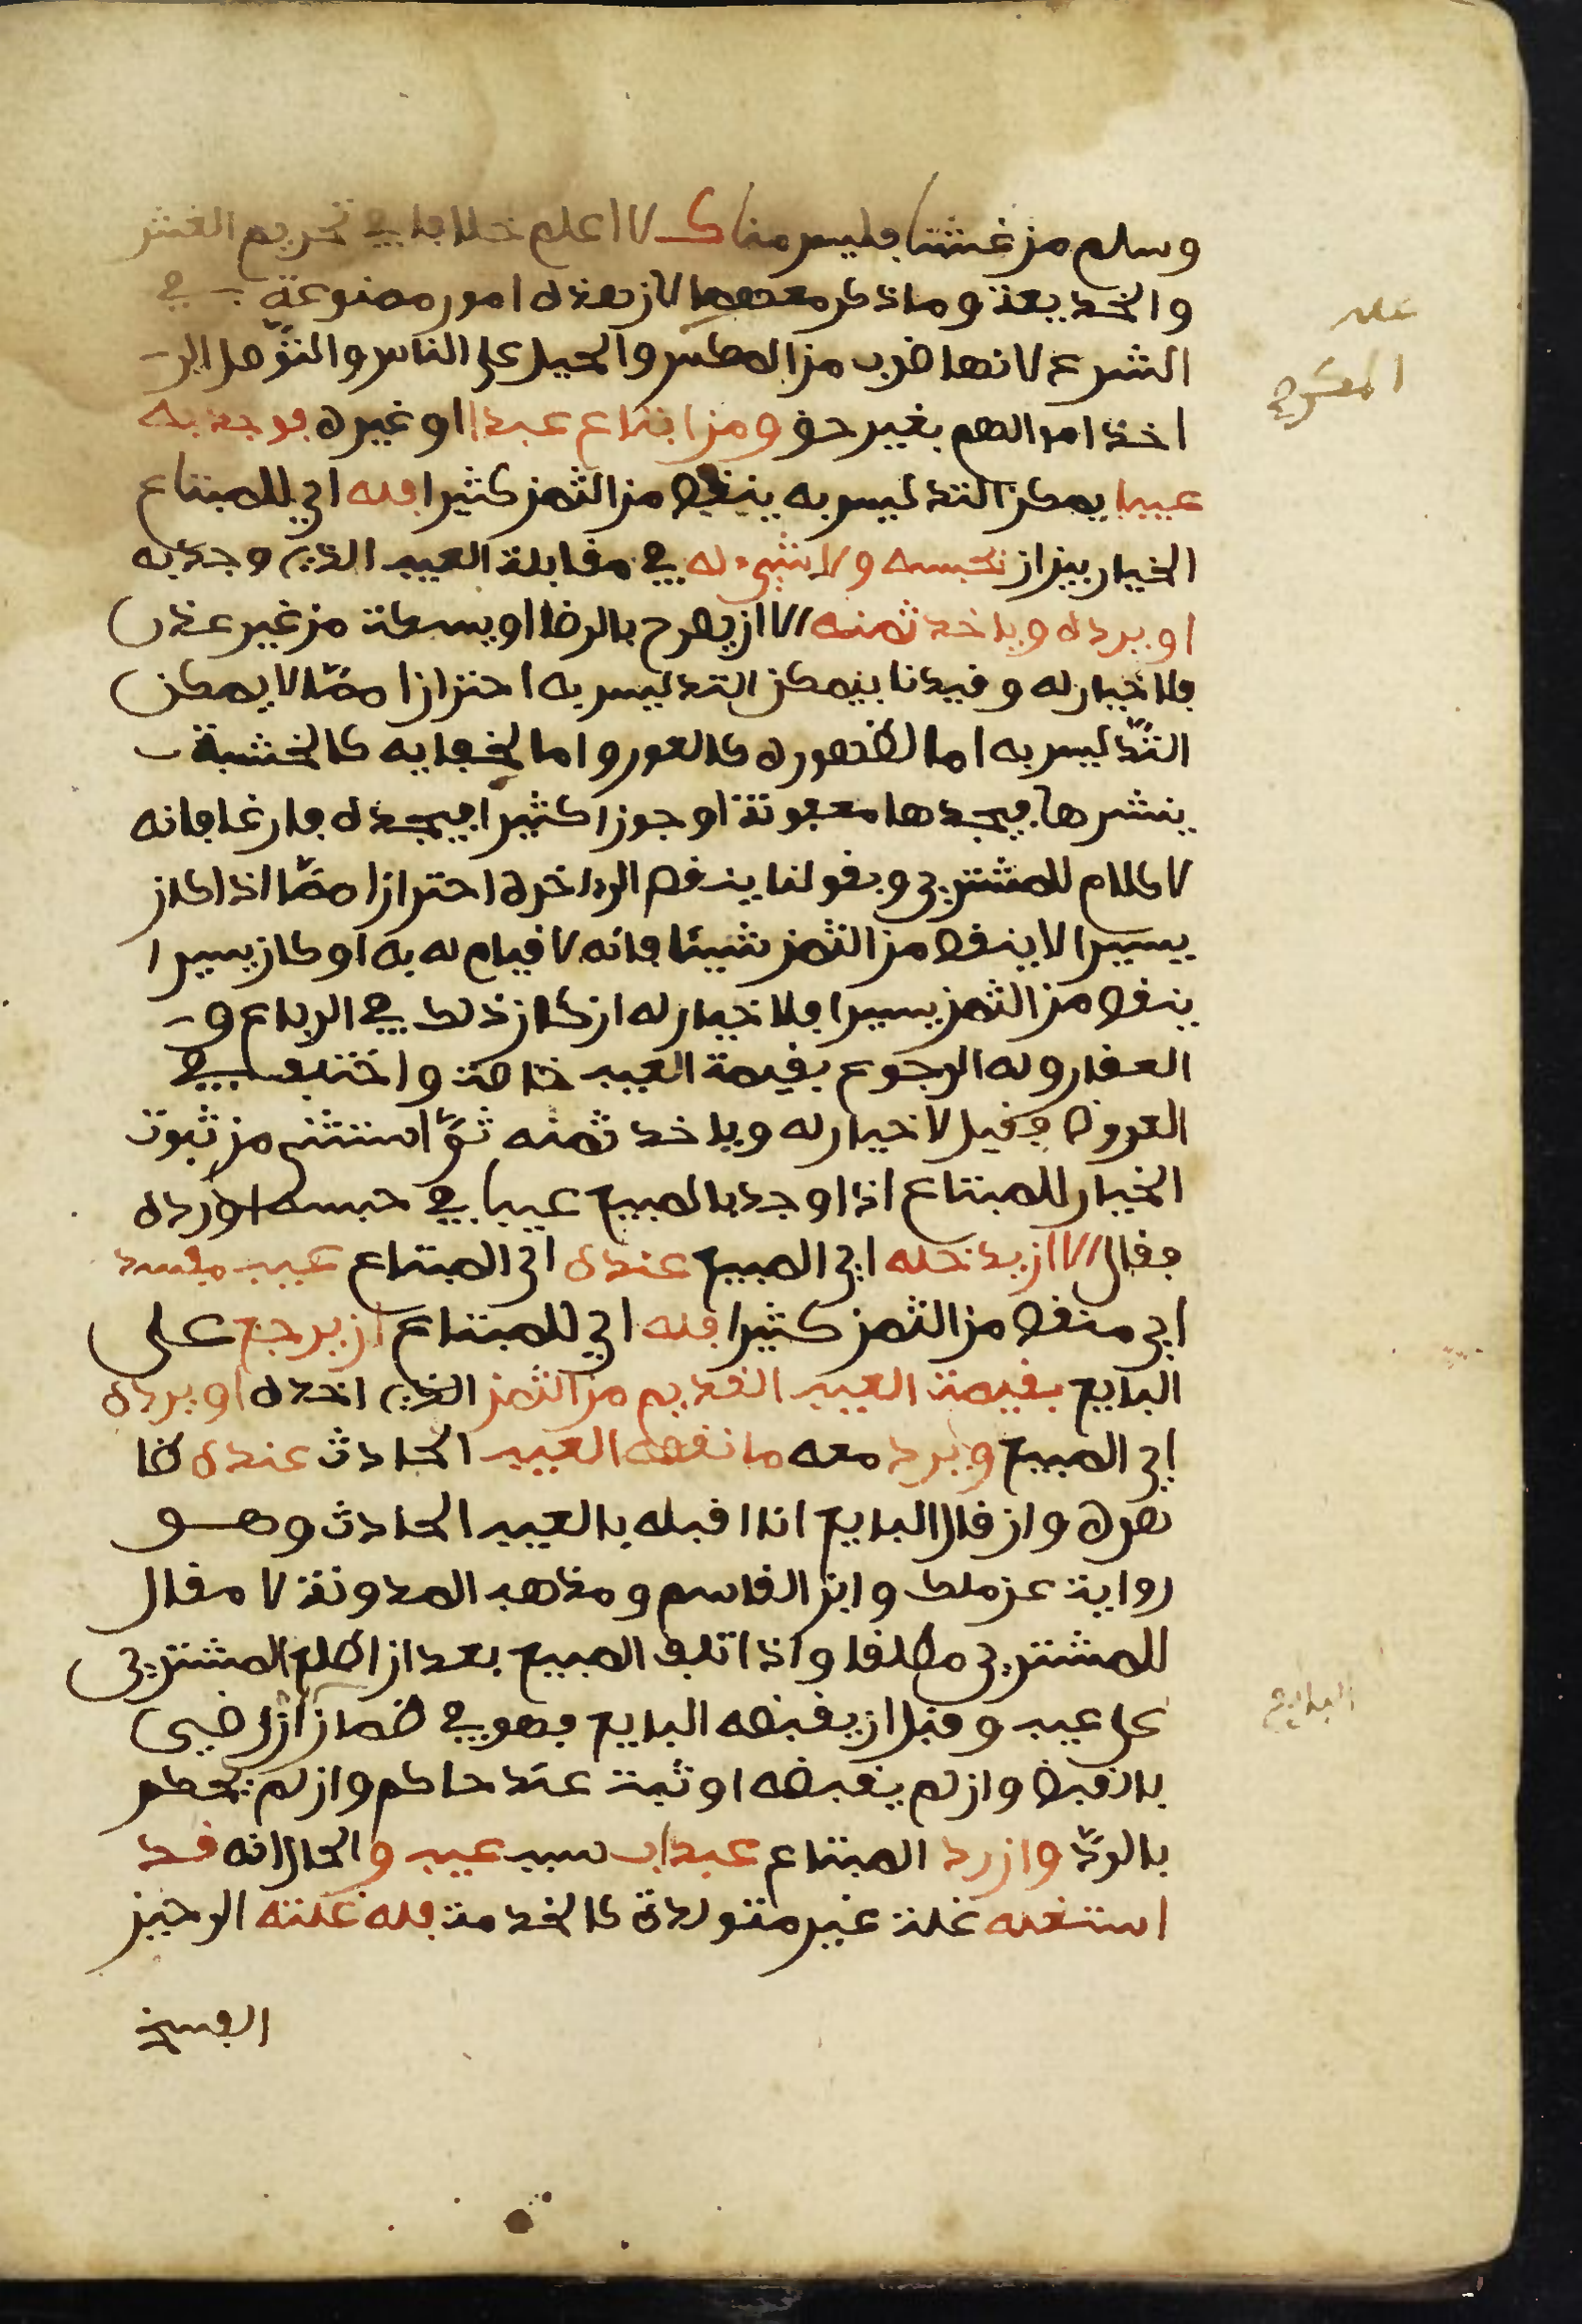 وسلم من غشنا فليس منا ك لا اعلم خلافا في تحريم الغش
والخديعة وما ذكر معهما لان هذه امور ممنوعة في
الشرع لانها ضرب من المكر والحيل على الناس والتوصل الى
اخذ اموالهم بغير حق ومن ابتاع عبدا او غيره فوجد به
عيبا يمكن التدليس به ينقص من الثمن كثيرا فله اي للمبتاع
الخيار بين ان يحبسه ولا شيء له في مقابلة العيب الذي وجد به
او يرده وياخد ثمنه الا ان يصرح بالرضا او يسكت من غير عذر
فلا خيار له وقيدنا بيمكن التدليس به احترازا مما لا يمكن
التدليس به اما لظهوره كالعور واما لخفايه كالخشبة
ينشرها فيجدها معفونة او جوزا كثيرا فيجده فارغا فانه
لا كلام للمشتري وبقولنا ينقص الى اخره احترازا مما اذا كان
يسيرا لا ينقص من الثمن شيئا فانه لا قيام له به او كان يسيرا
ينقص من الثمن يسيرا فلا خيار له ان كان ذلك في الرباع و
العقار وله الرجوع بقيمة العيب خاصة واختلف في
العروض فقيل لا خيار له وياخد ثمنه ثم استثنى من ثبوت
الخيار للمبتاع اذا وجد بالمبيع عيبا في حبسه اورده
فقال الا ان يدخله اي المبيع عنده اي المبتاع عيب مفسد
اي منقص من الثمن كثيرا فله اي للمبتاع ان يرجع على
البايع بقيمة العيب القديم من الثمن الذي اخذه او يرده
اي المبيع ويرد معه ما نقصه العيب الحادث عنده ظا
هره وان قال البايع انا اقبله بالعيب الحادث وهو
رواية عن ملك وابن القاسم ومذهب المدونة لا مقال
للمشتري مطلقا واذا تلف المبيع بعد ان اطلع المشتري
على عيب وقبل ان يقبضه البايع فهو في ضمان ان رضي
بالقبض وان لم يقبضه او ثبت عند حاكم وان لم يحكم
بالرد وان رد المبتاع عبدا بسبب عيب والحال انه قد
استغله غلة غير متولدة كالخدمة فله غلته الى حين
الفسخ
عليه
البايع